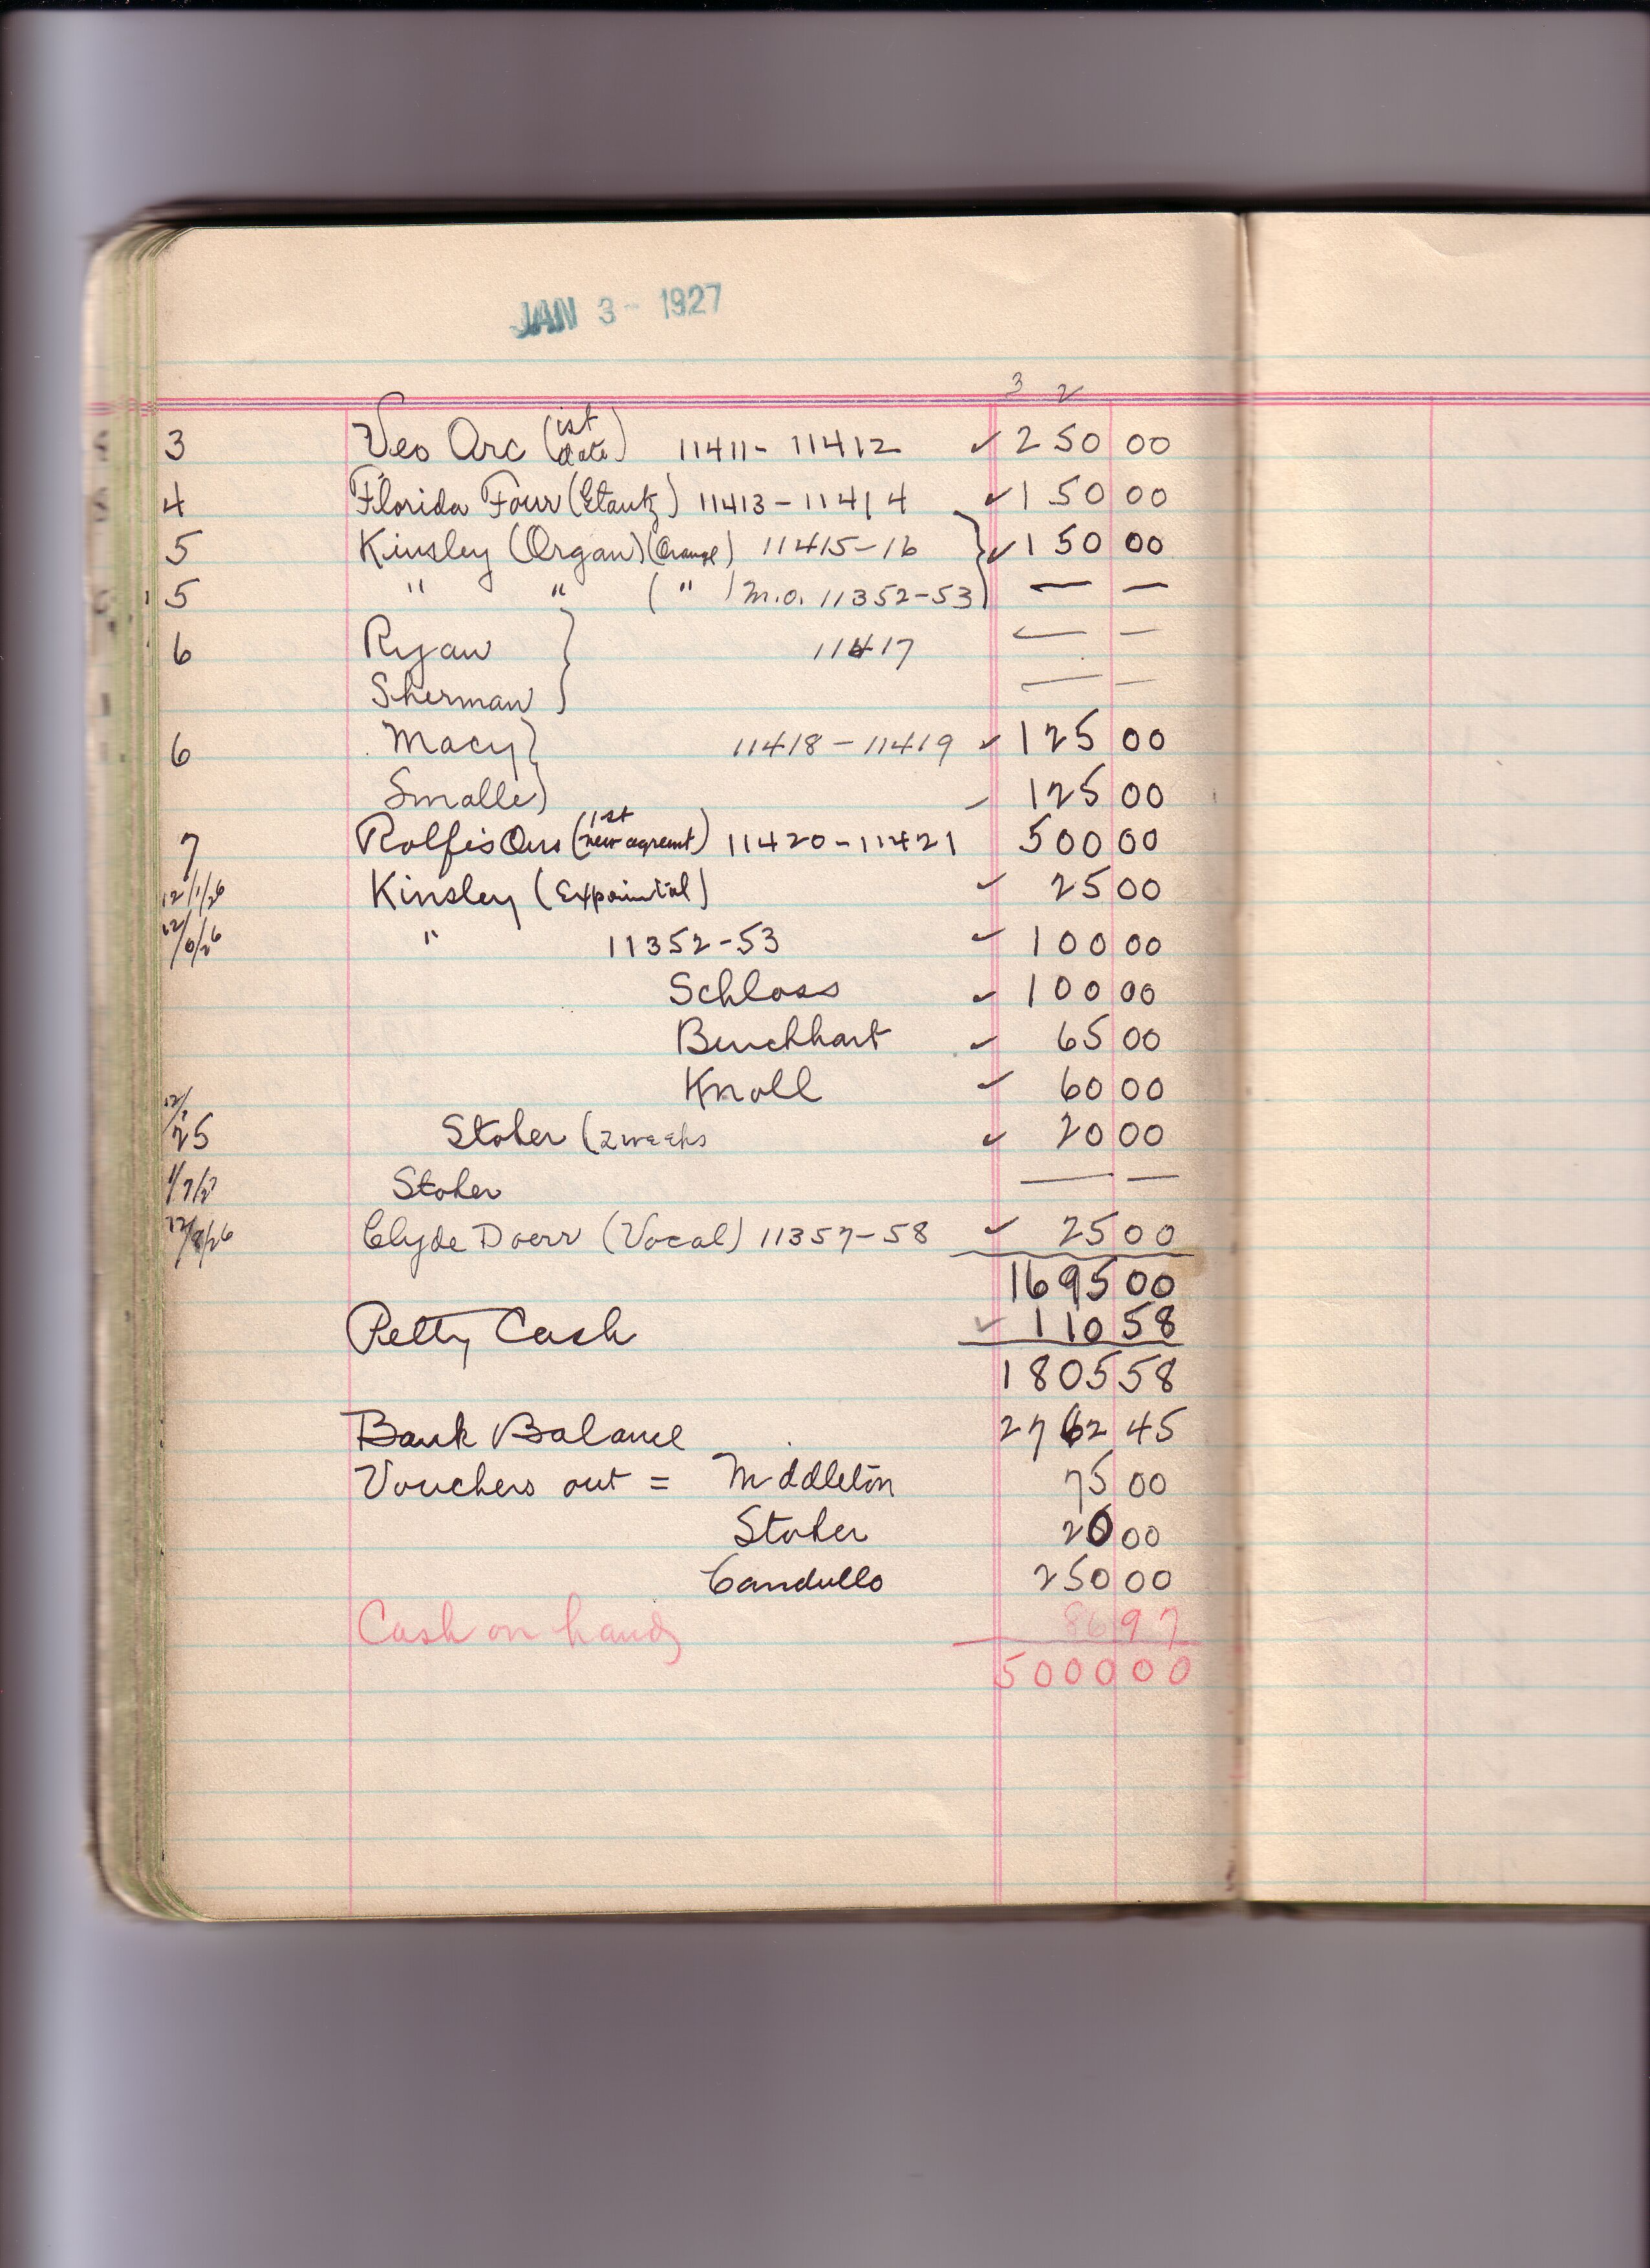 JAN 3 - 1927
3 2
3 Veo Arc (1st date) 11411- 11412 ✓ 250 00
4 Florida Four ( ) 11413-11414 ✓ 150 00
5 Kinsley (Organ) (Orange) 11415-16 } ✓ 150 00
5 " " ( " ) M.O. 11352-53 } — —
6 Ryan } 11417 — —
Sherman } — —
6 Macy } 11418-11419 ✓ 125 00
Smalle } ✓ 125 00
7 Rolfis (1st new agremt) 11420-11421 500 00
12/1/26 Kinsley ( ) ✓ 25 00
" 11352-53 ✓ 100 00
Schloss ✓ 100 00
✓ 65 00
Knoll ✓ 60 00
12/25 Stoher (2 weeks ✓ 20 00
Stoher — —
12/8/26 Clyde Doerr (Vocal) 11357-58 ✓ 25 00
1695 00
Petty Cash ✓ 110 58
1805 58
Bank Balance 2762 45
Vouchers out = Middleton 75 00
Stoher 20 00
Candullo 250 00
Cash on hand 86 97
5000 00